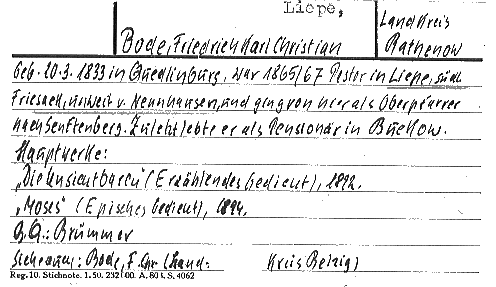 Liepe,
Bode, Friedrich Karl Christian
Landkreis
Rathenow
Geb. 10.3. 1833 in Quedlinburg, war 1865/67 Pastor in Liepe, südl.
Friesack, unweit v. Nennhausen, und ging von hier als Oberpfarrer
nach Senftenberg. Zuletzt lebte er als Pensionär in Buckow.
Hauptwerke:
„Die Unsichtbaren" (Erzählendes Gedicht), 1892.
„Moses" (Episches Gedicht), 1894.
Brümmer
Siehe auch: Bode, F. Chr. (Land-
Kreis Belzig)
Reg. 10. Stichnote. 1. 50. 232/00. A. 80 k. S. 4062